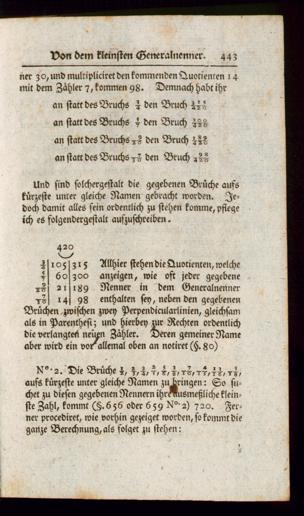 Von dem kleinsten Generalnenner. 443
ner 30, und multipliciret den kommenden Quotienten 14
mit dem Zähler 7, kommen 98. Demnach habt ihr
an statt des Bruchs 3/4 den Bruch 315/420
an statt des Bruchs 5/7 den Bruch 300/420
an statt des Bruchs 9/20 den Bruch 189/420
an statt des Bruchs 7/30 den Bruch 98/420
Und sind solchergestalt die gegebenen Brüche aufs
kürzeste unter gleiche Namen gebracht worden. Je-
doch damit alles fein ordentlich zu stehen komme, pflege
ich es folgendergestalt aufzuschreiben.
420
3/4 | 105 | 315 Allhier stehen die Quotienten, welche
5/7 | 60 | 300 anzeigen, wie oft jeder gegebene
9/20 | 21 | 189 Nenner in dem Generalnenner
7/30 | 14 | 98 enthalten sey, neben den gegebenen
Brüchen zwischen zwey Perpendicularlinien, gleichsam
als in Parenthesi; und hierbey zur Rechten ordentlich
die verlangten neuen Zähler. Deren gemeiner Name
aber wird ein vor allemal oben an notiret (§. 80)
No. 2. Die Brüche
aufs kürzeste unter gleiche Namen zu bringen: So su-
chet zu diesen gegebenen Nennern ihre ausmeßliche klein-
ste Zahl, kommt (§. 656 oder 659 No. 2) 720. Fer-
ner procediret, wie vorhin gezeiget worden, so kommt die
ganze Berechnung, als folget zu stehen: